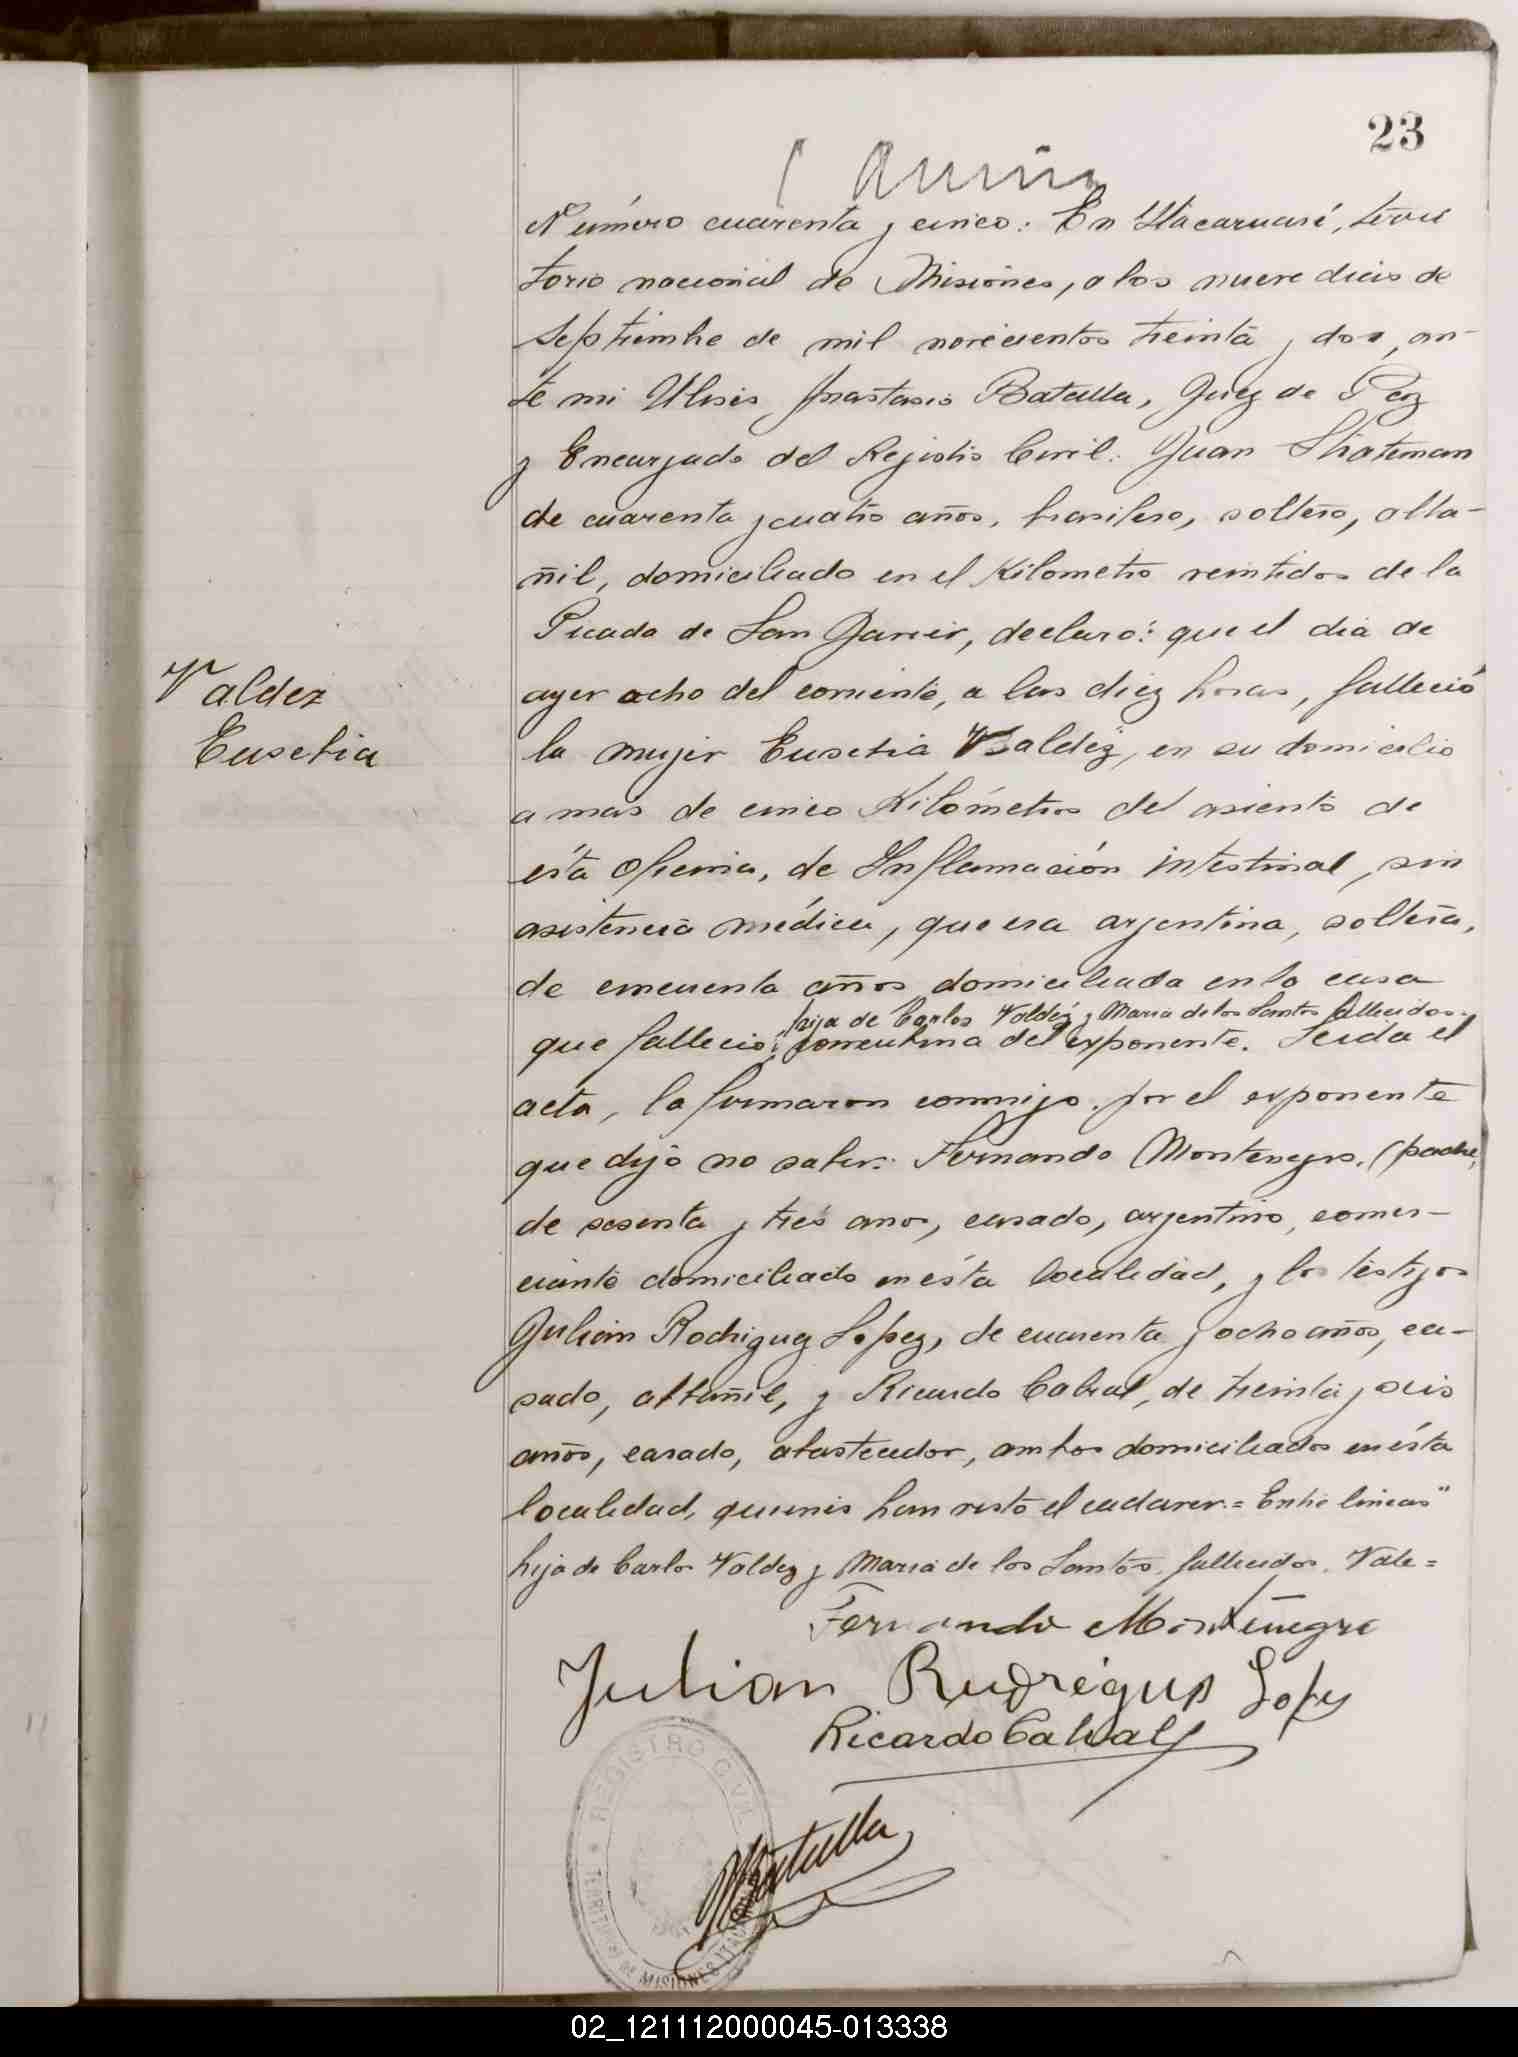 23
Número cuarenta y cinco: En Itacaruaré, terri
torio nacional de Misiones, a los nueve dias de
Septiembre de mil novecientos treinta y dos, an-
te mi Ulises Anastasio Batalla, Juez de Paz
y Encargado del Rejistro Civil: Juan Shateman
de cuarenta y cuatro años, brasilero, soltero, alba-
ñil, domiciliado en el Kilometro veintidos de la
Picada de San Javier, declaró: que el dia de
ayer ocho del corriente, a las diez horas, falleció
Valdez
Eusebia
la mujer Eusebia Valdéz, en su domicilio
a mas de cinco Kilómetros del asiento de
ésta oficina, de Inflamación intestinal, sin
asistencia médica, que era argentina, soltera,
de cincuenta años domiciliada en la casa
hija de Carlos Valdéz y Maria de los Santos fallecidos.
que fallecio; concubina del exponente. Leida el
acta, la firmaron conmigo. por el exponente
que dijo no saber: Fernando Montenegro. (padre,
de sesenta y tres anos, casado, argentino, comer-
ciante domiciliado en ésta localidad, y los testigos
Julián Rodriguez Lopez, de cuarenta y ocho años, ca-
sado, albañil, y Ricardo Cabral, de treinta y seis
años, casado, abastecedor, ambos domiciliados en ésta
localidad, quienes han visto el cadaver.= Entre lineas"
hija de Carlos Valdez y Maria de los Santos. fallecidos. Vale=
Fernando Montenegro
Julian Rudregues Lopez
Ricardo Cabral
Batalla
REGISTRO CIVIL
TERRITORIO DE MISIONES
02_121112000045-013338